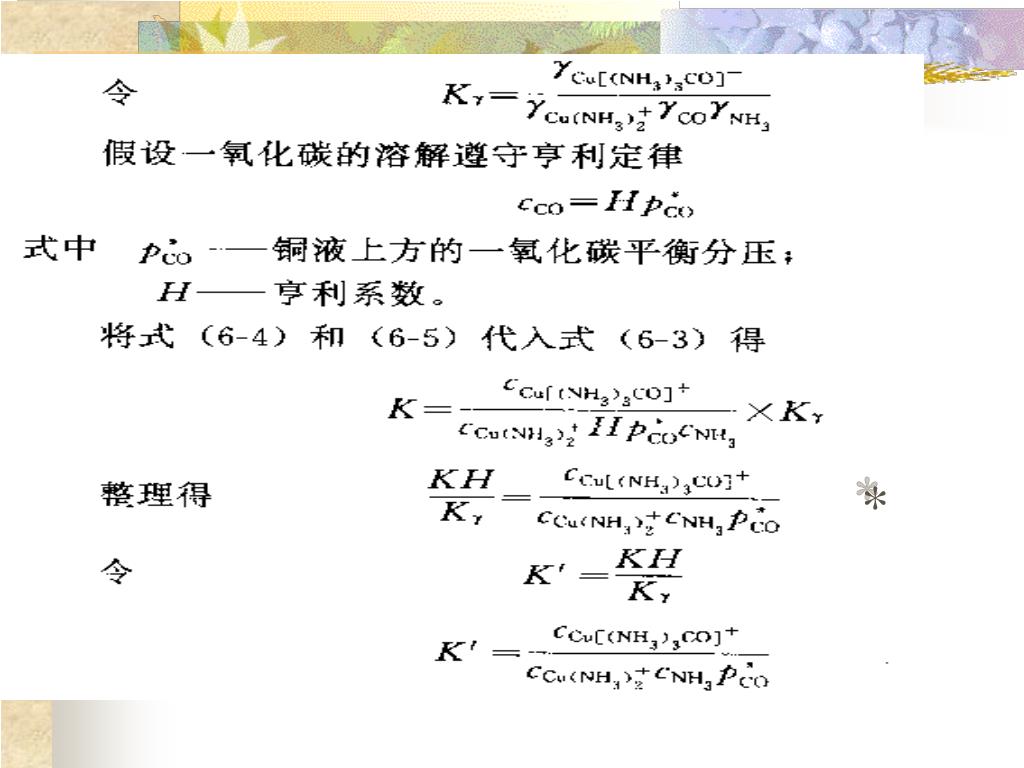 令 Kγ = γCu[(NH₃)₃CO]⁻ / γCu(NH₃)₂⁺ γCO γNH₃
假设一氧化碳的溶解遵守亨利定律
cCO = H p*CO
式中 p*CO ——铜液上方的一氧化碳平衡分压;
H——亨利系数。
将式（6-4）和（6-5）代入式（6-3）得
K = cCu[(NH₃)₃CO]⁺ / cCu(NH₃)₂⁺ H p*CO cNH₃ × Kγ
整理得 KH / Kγ = cCu[(NH₃)₃CO]⁺ / cCu(NH₃)₂⁺ cNH₃ p*CO *
令 K′ = KH / Kγ
K′ = cCu[(NH₃)₃CO]⁺ / cCu(NH₃)₂⁺ cNH₃ p*CO